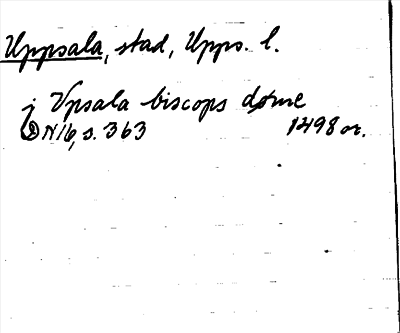 Uppsala, stad, Upps. l.
j Vpsala biscops døme
DN 16, s. 363 1498 or.